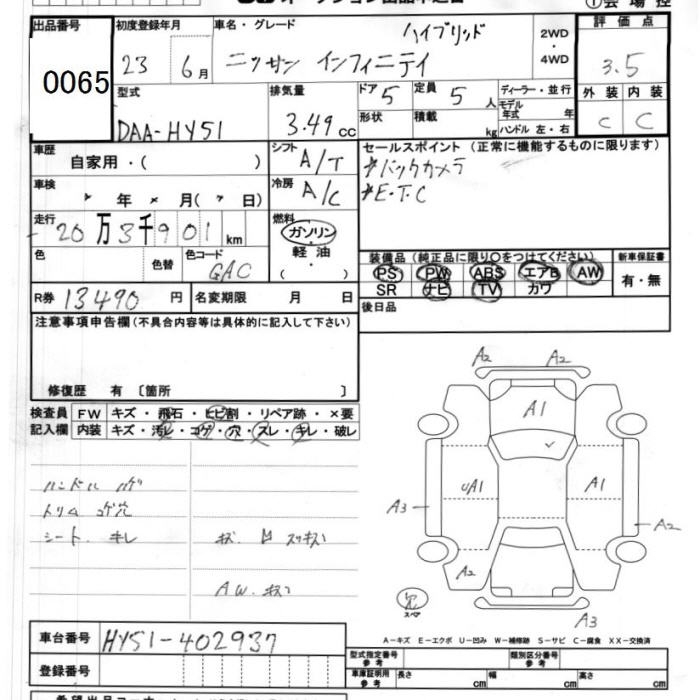 出品番号 初度登録年月 車名・グレード ハイブリッド 2WD ・ 4WD 評価点
0065 23 6月 ニッサン インフィニティ 3.5
型式 排気量 ドア 5 定員 5人 ディーラー・並行 外装 内装
DAA-HY51 3.49 cc 形状 積載 kg モデル年式 年 C C
ハンドル 左・右
車歴 自家用・( ) シフト A/T セールスポイント(正常に機能するものに限ります)
車検 年 月( 日) 冷房 A/C *バックカメラ
*E・T・C
走行 20万3千901km 燃料 ガソリン・軽油・( )
色 色替 色コード GAC 装備品(純正品に限り○をつけてください) 新車保証書
PS PW ABS エアB AW 有・無
SR ナビ TV カワ
R券 13490円 名変期限 月 日 後日品
注意事項申告欄(不具合内容等は具体的に記入して下さい)
修復歴 有〔箇所 〕
検査員 FW キズ・飛石・ヒビ割・リペア跡・×要
記入欄 内装 キズ・汚レ・コゲ・穴・スレ・キレ・破レ
ハンドル ハゲ
トリム コゲ穴
シート キレ
キズ 凹 スリキズ
A.W. キズ
A2 A2
A1
UA1 A1
A3 A2
A2
穴 スペア
A3
A-キズ E-エクボ U-凹み W-補修跡 S-サビ C-腐食 XX-交換済
車台番号 HY51-402937
型式指定番号 参考 類別区分番号 参考
登録番号 車庫証明用 参考 長さ cm 幅 cm 高さ cm